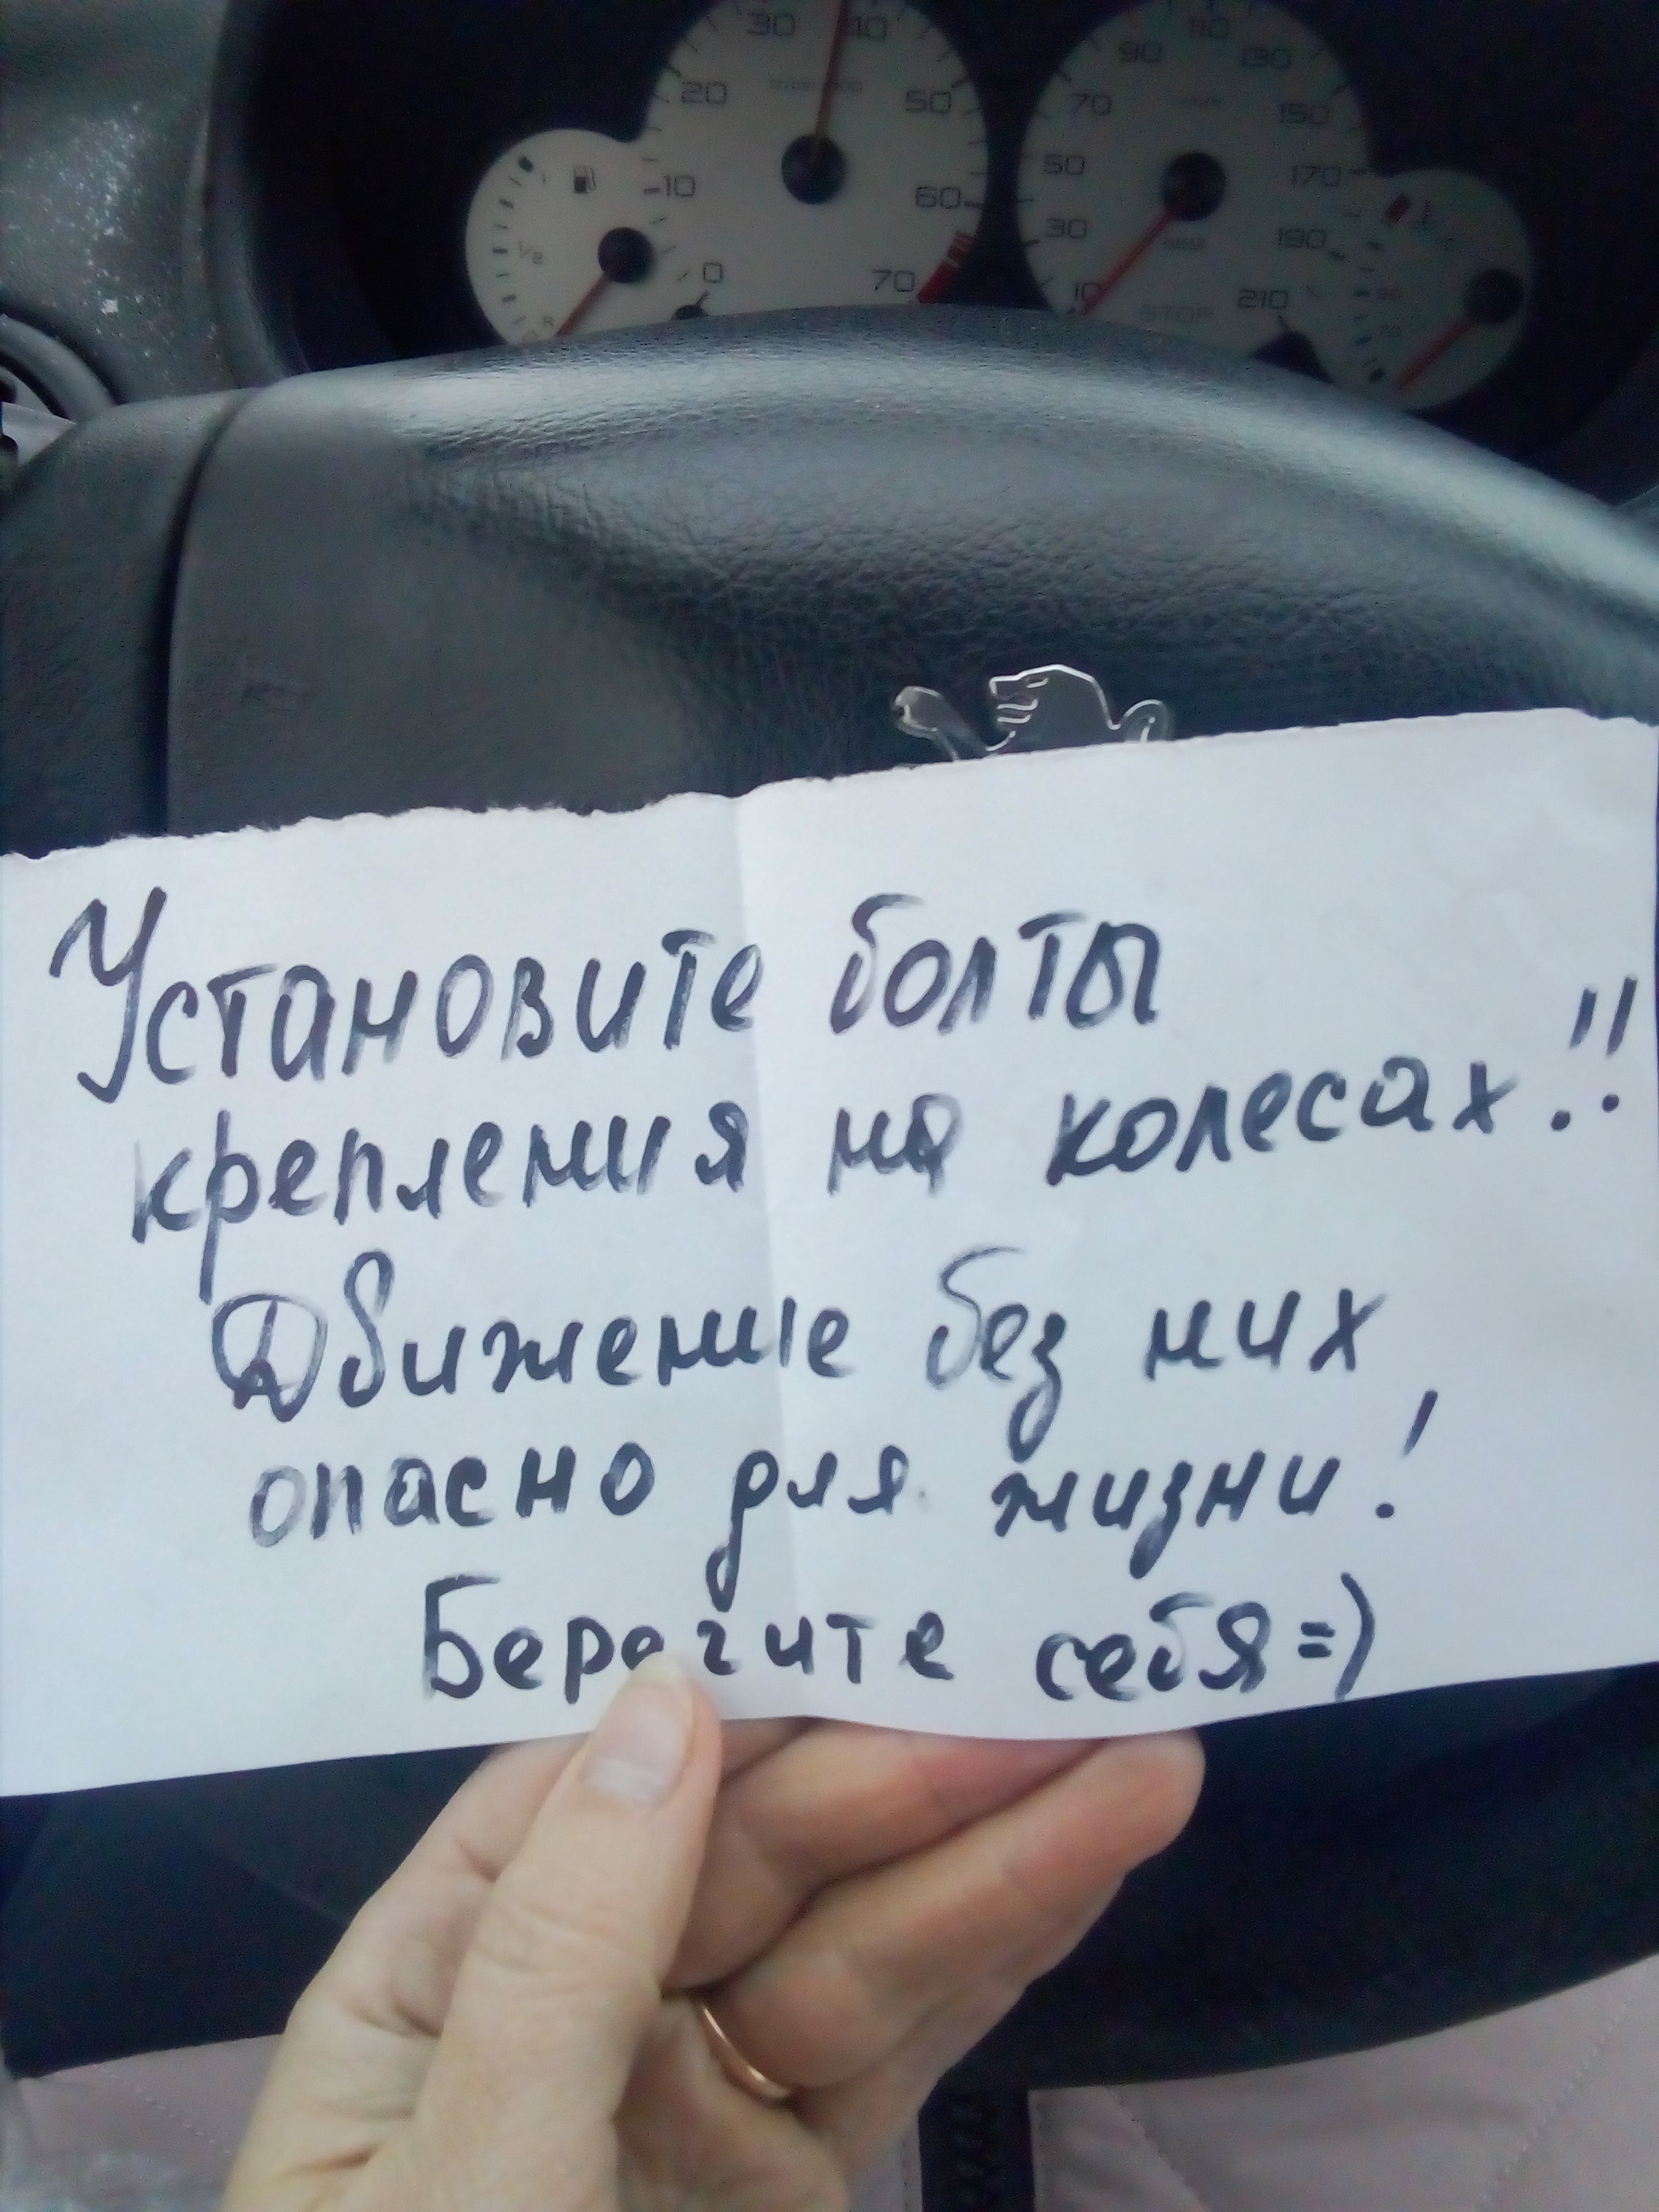 30 40
20 50
10 60
0 70
1/2
R
110
90 130
70 150
50 170
30 190
10 210
STOP
90
70
Установите болты
крепления на колесах!!
Движение без них
опасно для жизни!
Берегите себя =)